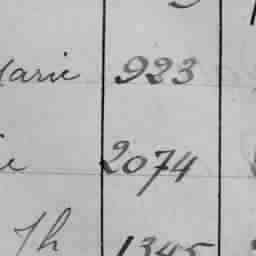 Marie 923
2074
Jh 1345